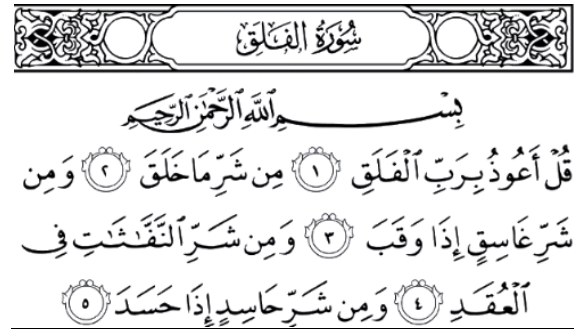 سُورَةُ الفَلَق
بِسْمِ ٱللَّهِ ٱلرَّحْمَٰنِ ٱلرَّحِيمِ
قُلْ أَعُوذُ بِرَبِّ ٱلْفَلَقِ ١ مِن شَرِّ مَا خَلَقَ ٢ وَمِن
شَرِّ غَاسِقٍ إِذَا وَقَبَ ٣ وَمِن شَرِّ ٱلنَّفَّٰثَٰتِ فِى
ٱلْعُقَدِ ٤ وَمِن شَرِّ حَاسِدٍ إِذَا حَسَدَ ٥